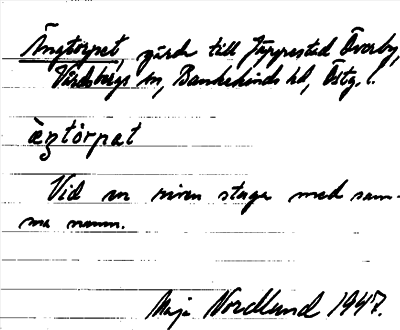 Ängtorpet, gärde till Jäppestad Överby,
Vårdsbergs sn, Bankekinds hd, Östg. l.
ä̀ŋtòrpat
Vid en riven stuga med sam-
ma namn.
Maja Nordlund 1947.